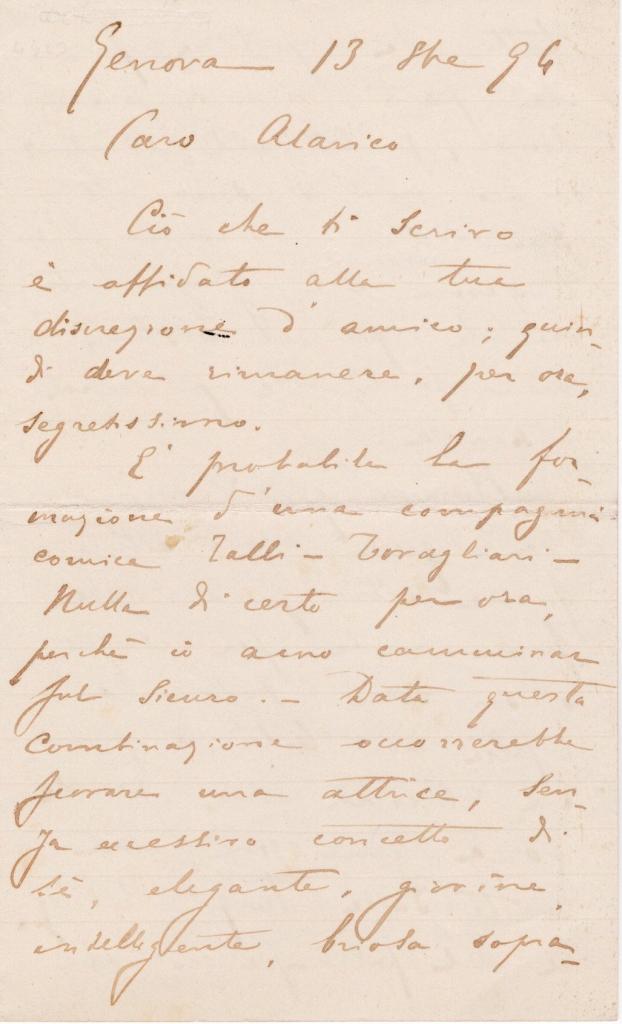 Genova 13 8bre 94
Caro Alarico
Ciò che ti scrivo
è affidato alla tua
discrezione d'amico; quin-
di deve rimanere, per ora,
segretissimo.
E' probabile la for-
mazione d'una compagnia
comica Talli - Tovagliari -
Nulla di certo per ora,
perchè io amo camminar
sul sicuro. - Data questa
combinazione occorrerebbe
trovare una attrice, sen-
za eccessivo concetto di
sè, elegante, giovine,
intelligente, briosa sopra-